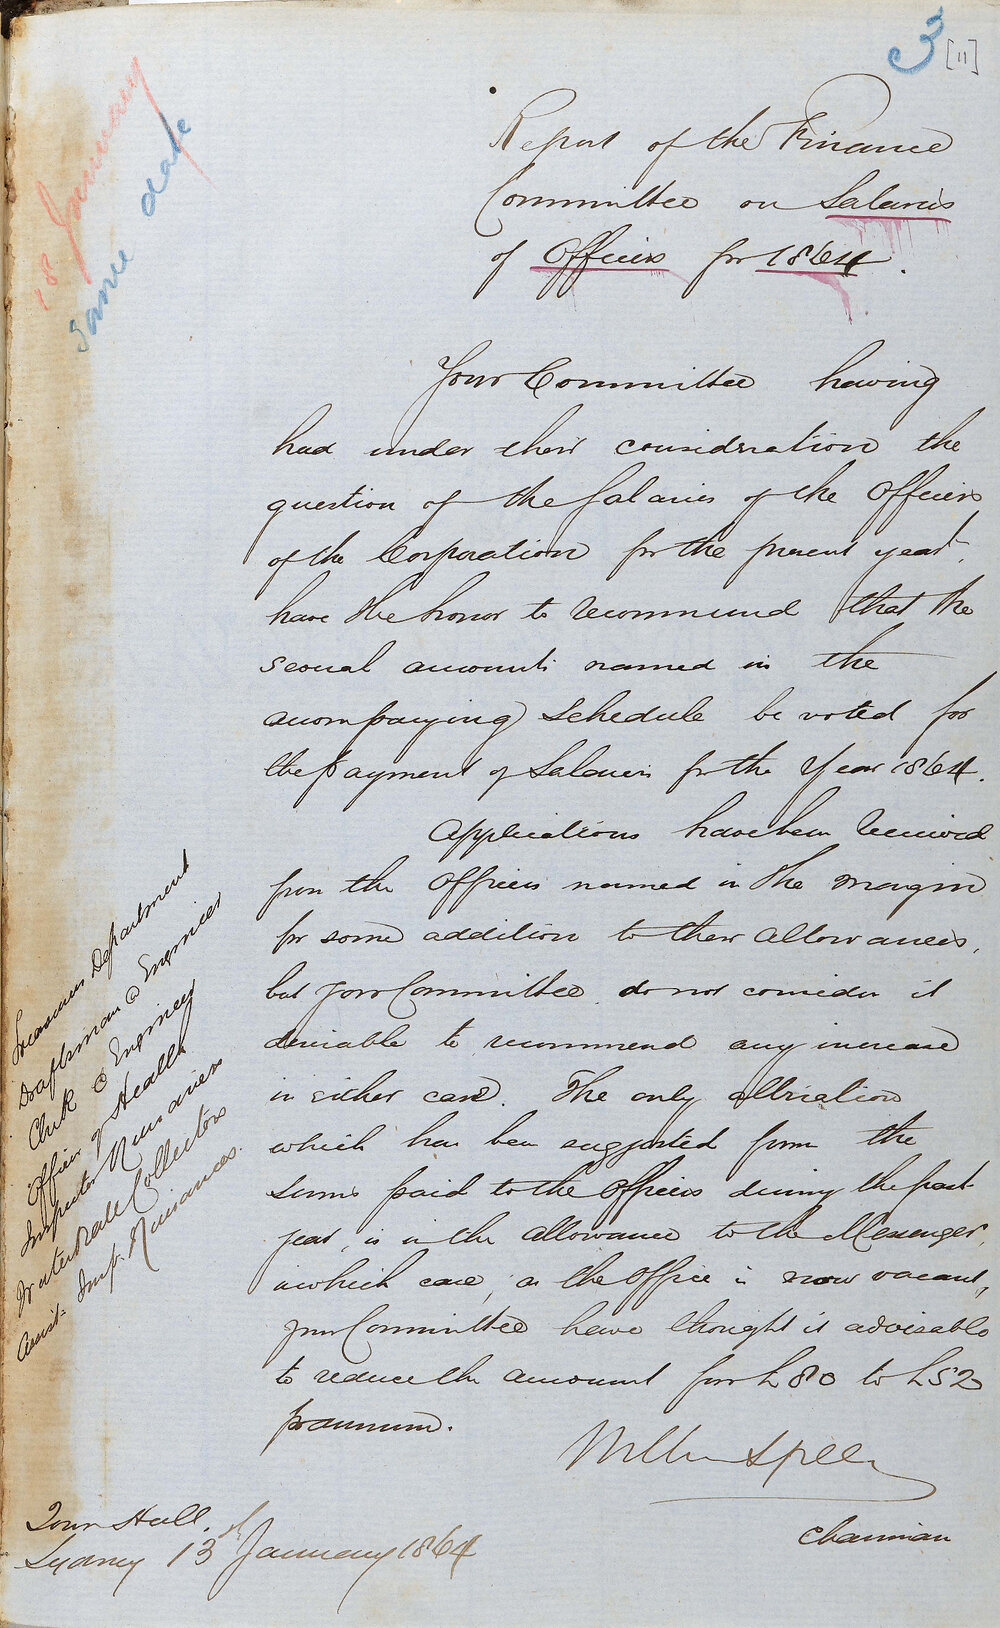 3 [11]
18 January
Same date
Report of the Finance
Committee on Salaries
of Officers for 1864.
Your Committee having
had under their consideration the
question of the Salaries of the Officers
of the Corporation for the present year,
have the honor to recommend that the
several amounts named in the
acompaying Schedule be voted for
the payment of Salaries for the Year 1864.
Applications have been received
from the Officers named in the margin
for some addition to their allowances,
but your Committee do not consider it
desirable to recommend any increase
in either case. The only alteration
which has been suggested from the
sums paid to the Officers during the past
year, is in the allowance to the Messenger,
in which case, as the Office is now vacant,
your Committee have thought it advisable
to reduce the amount from £80 to £52
per annum.
Treasurers Department
Draftsman @ Engineer
Clerk @ Engineer
Officer of Health
Inspector Nuisances
Water Rate Collectors
Assist. Insp. Nuisances.
Speer
Chairman
Town Hall,
Sydney 13th January 1864